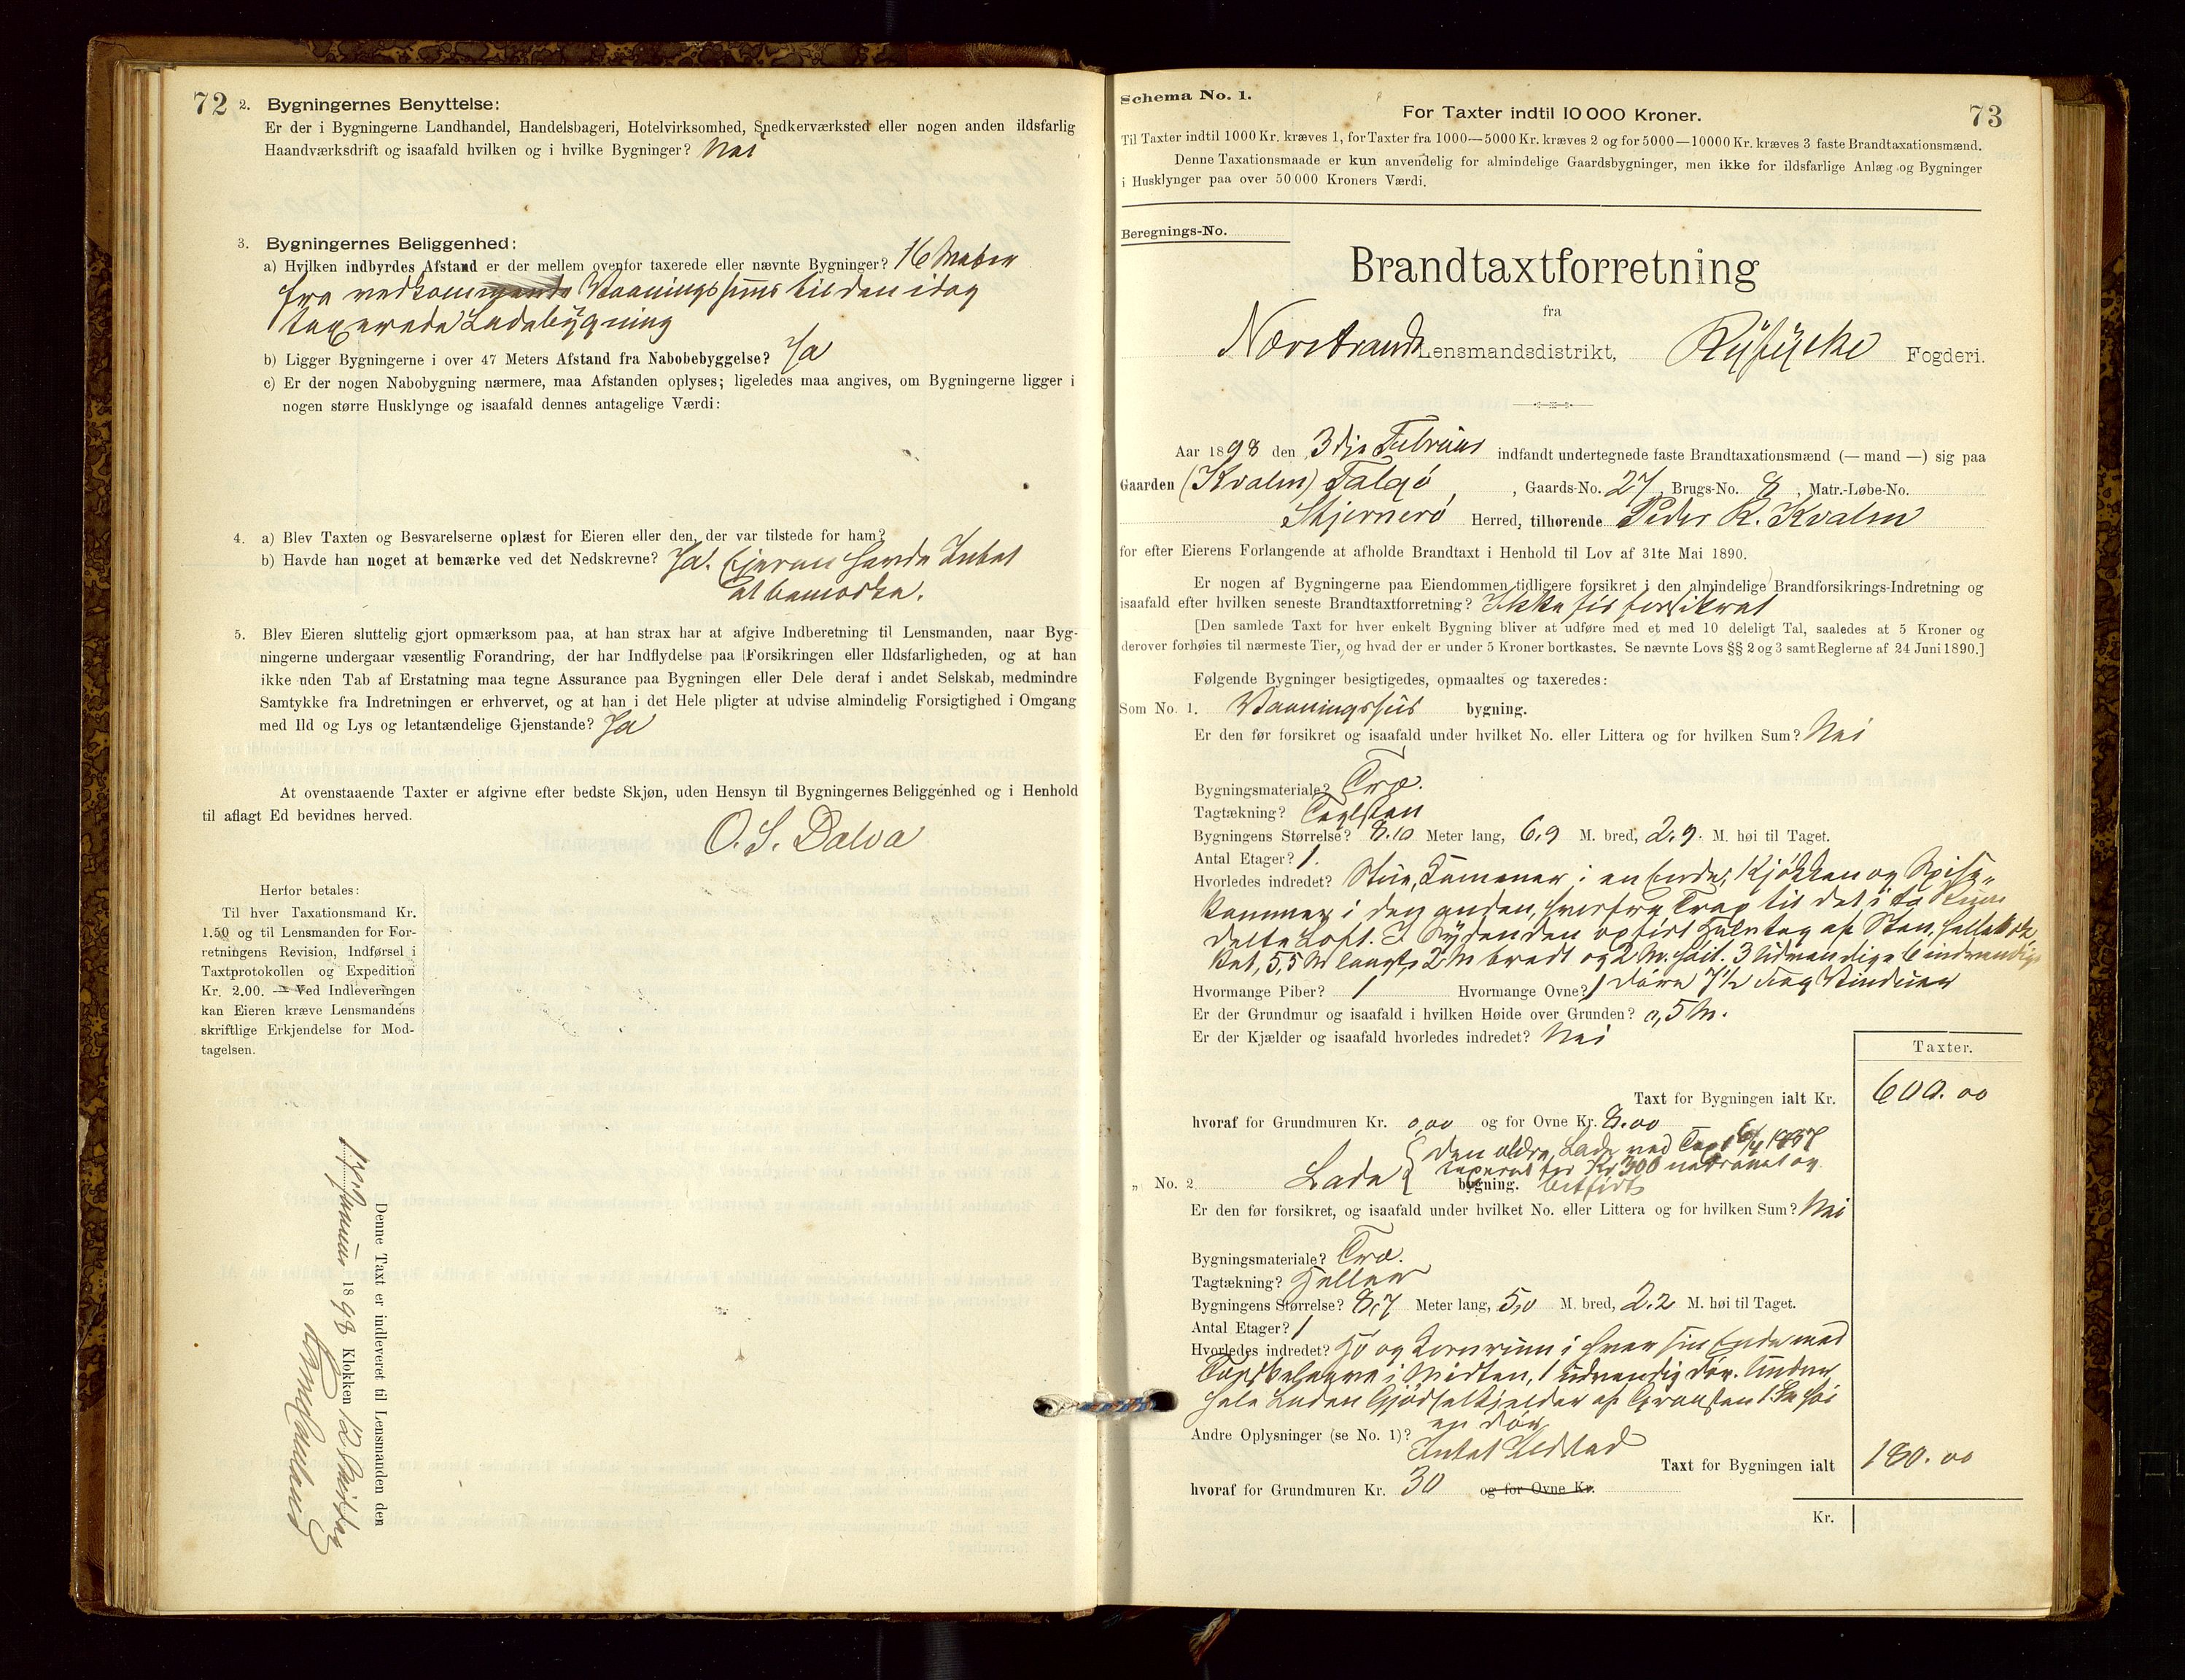 72
2. Bygningernes Benyttelse:
Er der i Bygningerne Landhandel, Handelsbageri, Hotelvirksomhed, Snedkerværksted eller nogen anden ildsfarlig
Haandværksdrift og isaafald hvilken og i hvilke Bygninger? Nei
3. Bygningernes Beliggenhed:
a) Hvilken indbyrdes Afstand er der mellem ovenfor taxerede eller nævnte Bygninger? 16 Meter
fra vedkommende Vaaningshuus til den idag
taxerede Ladebygning
b) Ligger Bygningerne i over 47 Meters Afstand fra Nabobebyggelse? Ja
c) Er der nogen Nabobygning nærmere, maa Afstanden oplyses; ligeledes maa angives, om Bygningerne ligger i
nogen større Husklynge og isaafald dennes antagelige Værdi:
4. a) Blev Taxten og Besvarelserne oplæst for Eieren eller den, der var tilstede for ham?
b) Havde han noget at bemærke ved det Nedskrevne? Ja. Ejeren havde Intet
at bemærke.
5. Blev Eieren sluttelig gjort opmærksom paa, at han strax har at afgive Indberetning til Lensmanden, naar Byg-
ningerne undergaar væsentlig Forandring, der har Indflydelse paa Forsikringen eller Ildsfarligheden, og at han
ikke uden Tab af Erstatning maa tegne Assurance paa Bygningen eller Dele deraf i andet Selskab, medmindre
Samtykke fra Indretningen er erhvervet, og at han i det Hele pligter at udvise almindelig Forsigtighed i Omgang
med Ild og Lys og letantændelige Gjenstande? Ja
At ovenstaaende Taxter er afgivne efter bedste Skjøn, uden Hensyn til Bygningernes Beliggenhed og i Henhold
til aflagt Ed bevidnes herved.
O. S. Dalva
Herfor betales:
Til hver Taxationsmand Kr.
1.50 og til Lensmanden for For-
retningens Revision, Indførsel i
Taxtprotokollen og Expedition
Kr. 2.00. — Ved Indleveringen
kan Eieren kræve Lensmandens
skriftlige Erkjendelse for Mod-
tagelsen.
Denne Taxt er indleveret til Lensmanden den
17. Januar 1898 Klokken 12 Middag
73
Schema No. 1.
For Taxter indtil 10 000 Kroner.
Til Taxter indtil 1000 Kr. kræves 1, for Taxter fra 1000—5000 Kr. kræves 2 og for 5000—10000 Kr. kræves 3 faste Brandtaxationsmænd.
Denne Taxationsmaade er kun anvendelig for almindelige Gaardsbygninger, men ikke for ildsfarlige Anlæg og Bygninger
i Husklynger paa over 50 000 Kroners Værdi.
Beregnings-No.
Brandtaxtforretning
fra
Nærstrands Lensmandsdistrikt, Ryfylke Fogderi.
Aar 1898 den 3dje Februar indfandt undertegnede faste Brandtaxationsmænd (— mand —) sig paa
Gaarden (Kvalm) Talgø, Gaards-No. 27, Brugs-No. 8, Matr.-Løbe-No.
Stjernerø Herred, tilhørende Peder K. Kvalm
for efter Eierens Forlangende at afholde Brandtaxt i Henhold til Lov af 31te Mai 1890.
Er nogen af Bygningerne paa Eiendommen tidligere forsikret i den almindelige Brandforsikrings-Indretning og
isaafald efter hvilken seneste Brandtaxtforretning? Ikke før forsikret
[Den samlede Taxt for hver enkelt Bygning bliver at udføre med et med 10 deleligt Tal, saaledes at 5 Kroner og
derover forhøies til nærmeste Tier, og hvad der er under 5 Kroner bortkastes. Se nævnte Lovs §§ 2 og 3 samt Reglerne af 24 Juni 1890.]
Følgende Bygninger besigtigedes, opmaaltes og taxeredes:
Som No. 1. Vaaningshus bygning.
Er den før forsikret og isaafald under hvilket No. eller Littera og for hvilken Sum? Nei
Bygningsmateriale? Træ.
Tagtækning? Taglsten
Bygningens Størrelse? 8.10 Meter lang, 6.9 M. bred, 2.9 M. høi til Taget.
Antal Etager? 1.
Hvorledes indredet? Stue, Kammer i en Ende, Kjøkken og Spise-
kammer i den anden, hvorfra Trap til det i to Rum
delte Loft. I Sydenden opført Halvtag af Sten, Helletæk
ket, 5,5 M langt, 2 M bredt og 2 M. høit. 3 udvendige 6 indvendige
Hvormange Piber? 1 Hvormange Ovne? 1 Døre 7 1/2 Fag Vinduer
Er der Grundmur og isaafald i hvilken Høide over Grunden? 0,5 M.
Er der Kjælder og isaafald hvorledes indredet? Nei
Taxter.
Taxt for Bygningen ialt Kr. 600.00
hvoraf for Grundmuren Kr. 0,00 og for Ovne Kr. 8.00
den ældre Lade ved Taxt 6/4 1887
taxeret for Kr 300 nedrevet og
„ No. 2 Lade bygning. bortført
Er den før forsikret, og isaafald under hvilket No. eller Littera og for hvilken Sum? Nei
Bygningsmateriale? Træ.
Tagtækning? Heller
Bygningens Størrelse? 8,7 Meter lang, 5,0 M. bred, 2.2 M. høi til Taget.
Antal Etager? 1
Hvorledes indredet? Hø og Kornrum i hver sin Ende med
Tærskelaave i Midten, 1 udvendig Dør. Under
hele Laden Gjødselkjelder af Graasten 1.8 m høi
en dør
Andre Oplysninger (se No. 1)? Intet Ildsted
Taxt for Bygningen ialt 180.00
hvoraf for Grundmuren Kr. 30 og for Ovne Kr.
Kr.